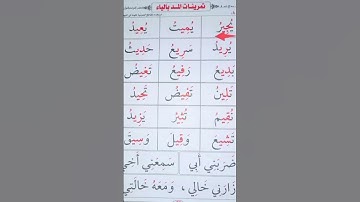 تمرينات المد بالياء
يُجِيرُ يُمِيتُ يُعِيدُ
يُرِيدُ سَرِيعُ حَدِيثُ
بَدِيعُ رَفِيعُ تَغِيضُ
تَلِينُ تَفِيضُ تُجِيدُ
نُقِيمُ تُثِيرُ يَزِيدُ
تَشِيعُ وَقِيلَ وَسِيقَ
ضَرَبَنِي أَبِي سَمِعَنِي أَخِي
زَارَنِي خَالِي ، وَمَعَهُ خَالَتِي